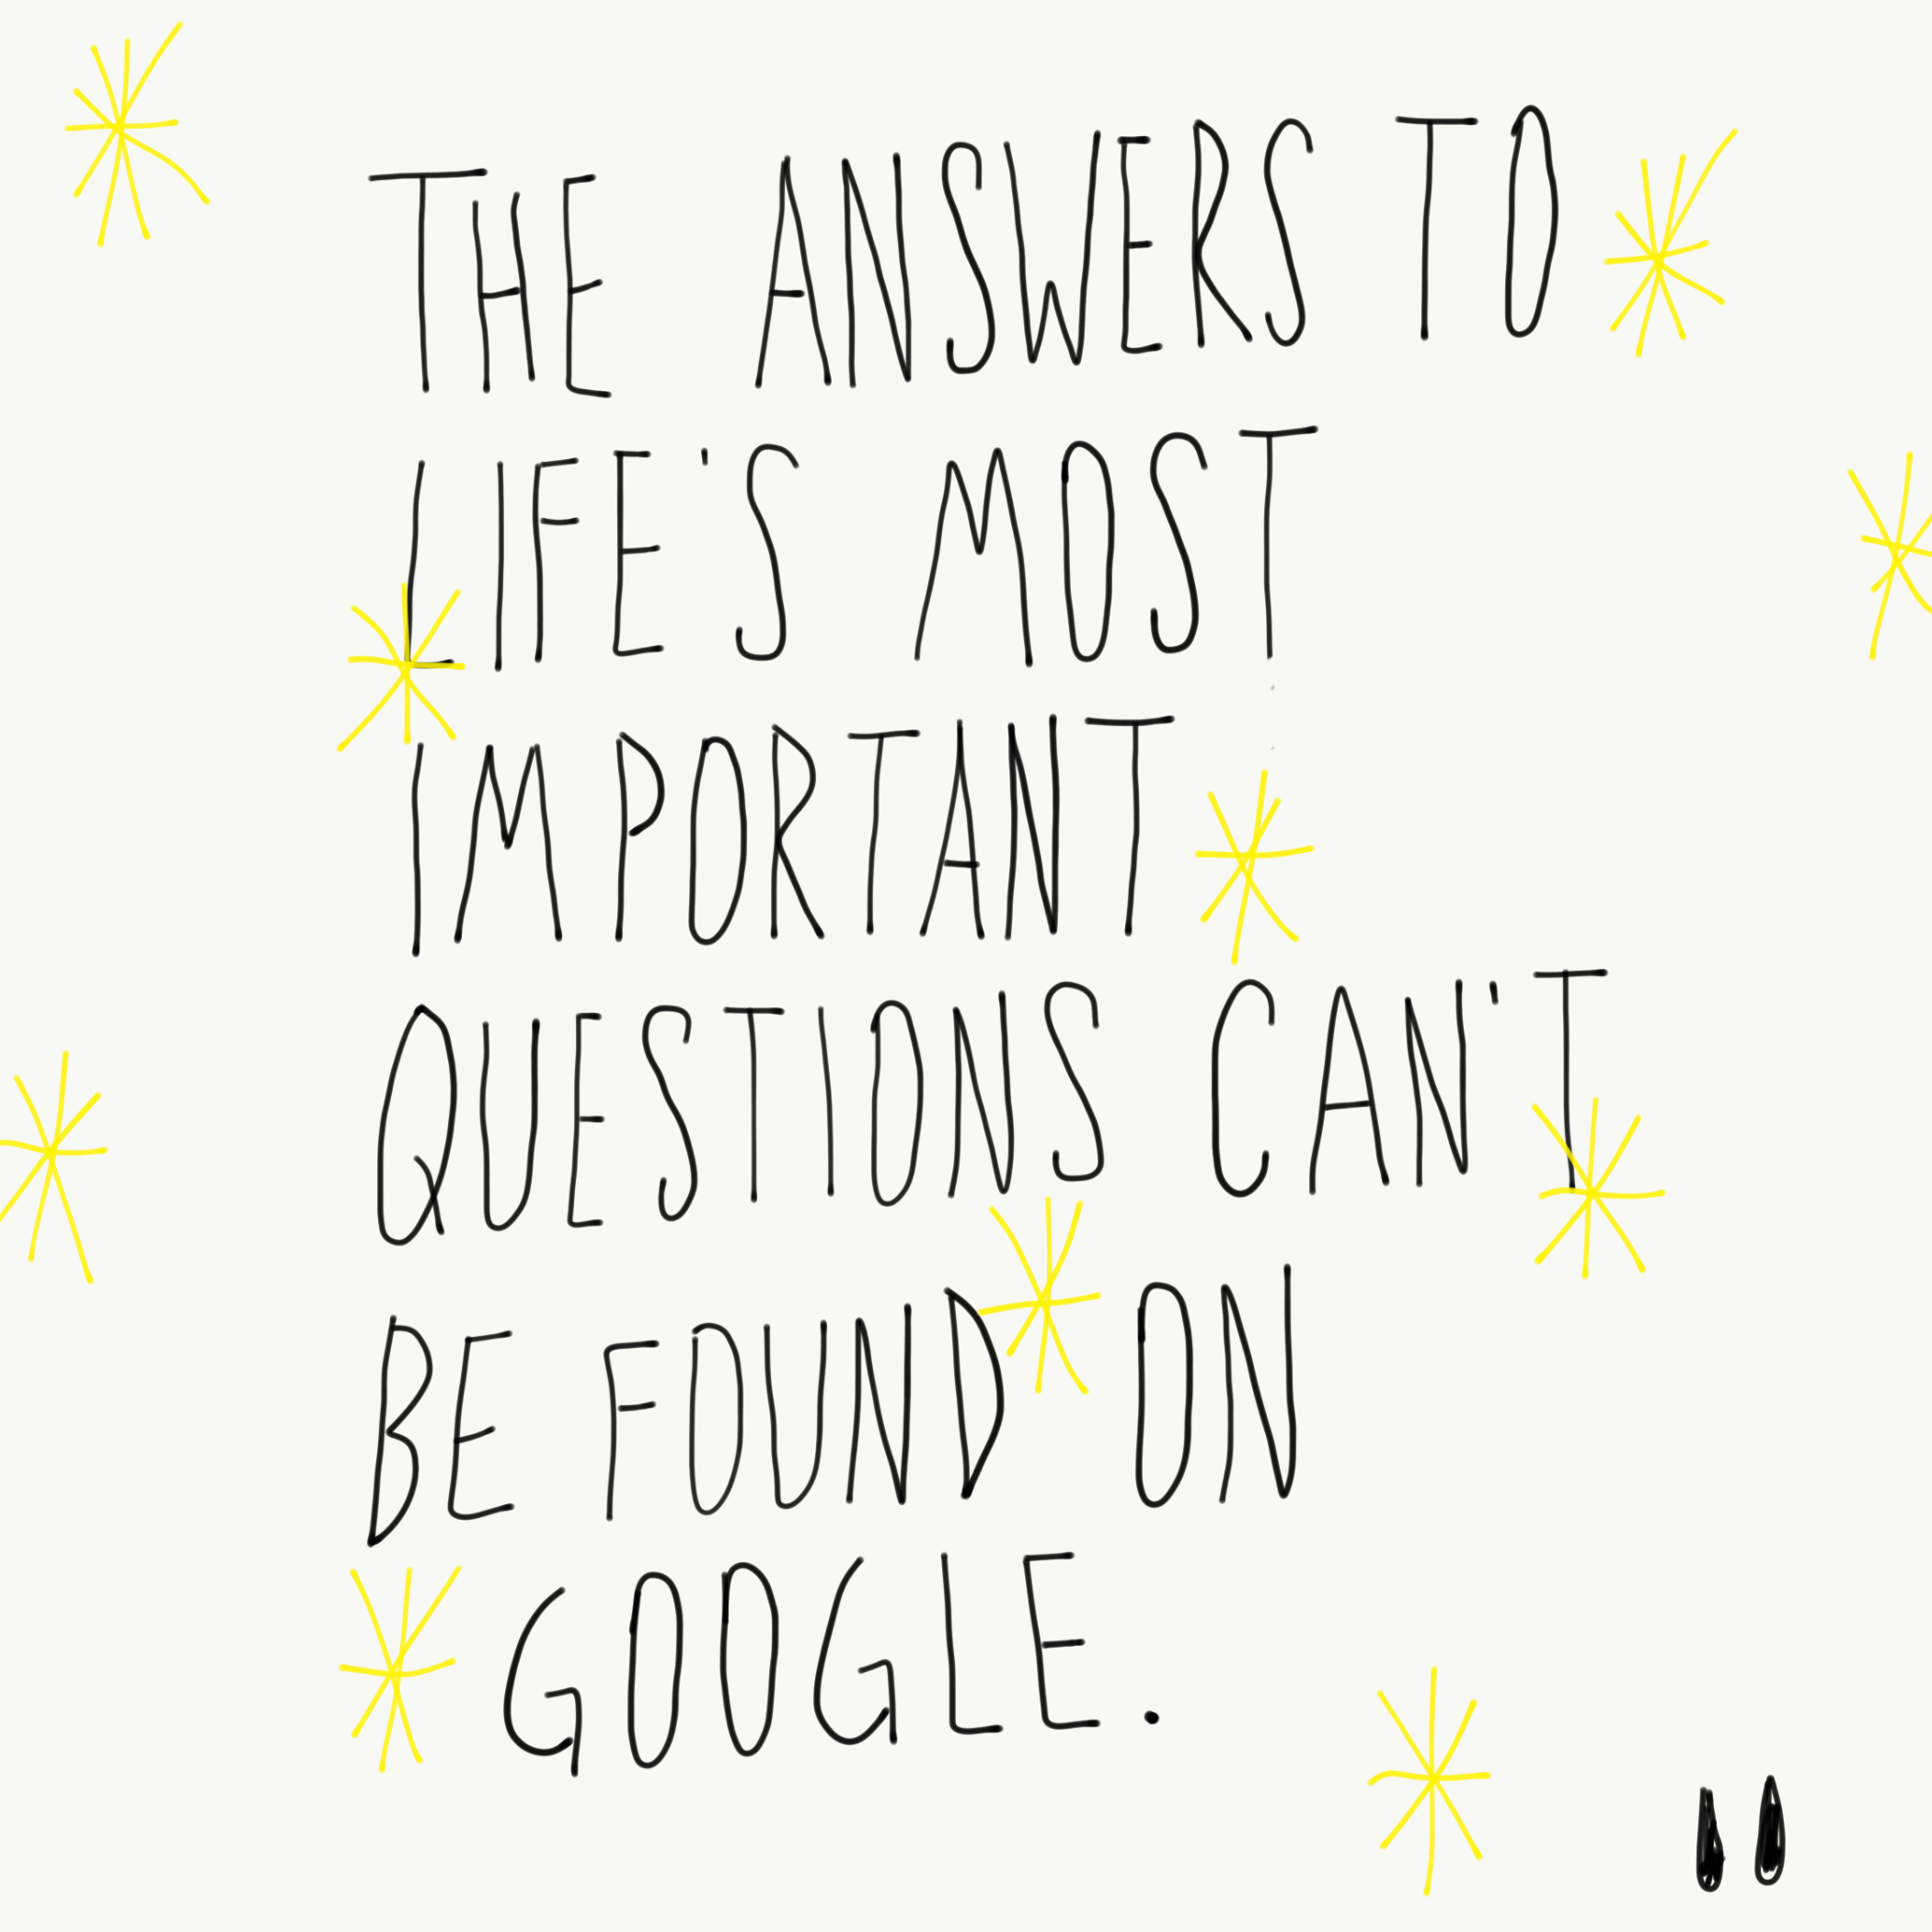 THE ANSWERS TO
LIFE'S MOST
IMPORTANT
QUESTIONS CAN'T
BE FOUND ON
GOOGLE.